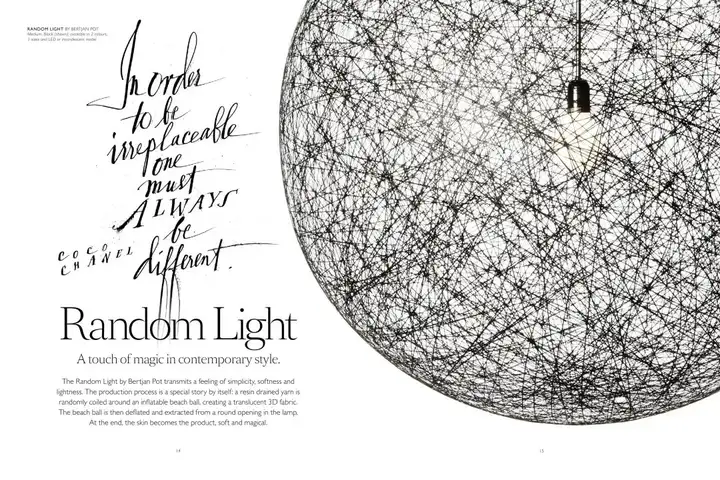 RANDOM LIGHT BY BERTJAN POT
In order
to be
irreplaceable
one
must
ALWAYS
be
different.
COCO
CHANEL
Random Light
A touch of magic in contemporary style.
The Random Light by Bertjan Pot transmits a feeling of simplicity, softness and
lightness. The production process is a special story by itself: a resin drained yarn is
randomly coiled around an inflatable beach ball, creating a translucent 3D fabric.
The beach ball is then deflated and extracted from a round opening in the lamp.
At the end, the skin becomes the product, soft and magical.
14
15